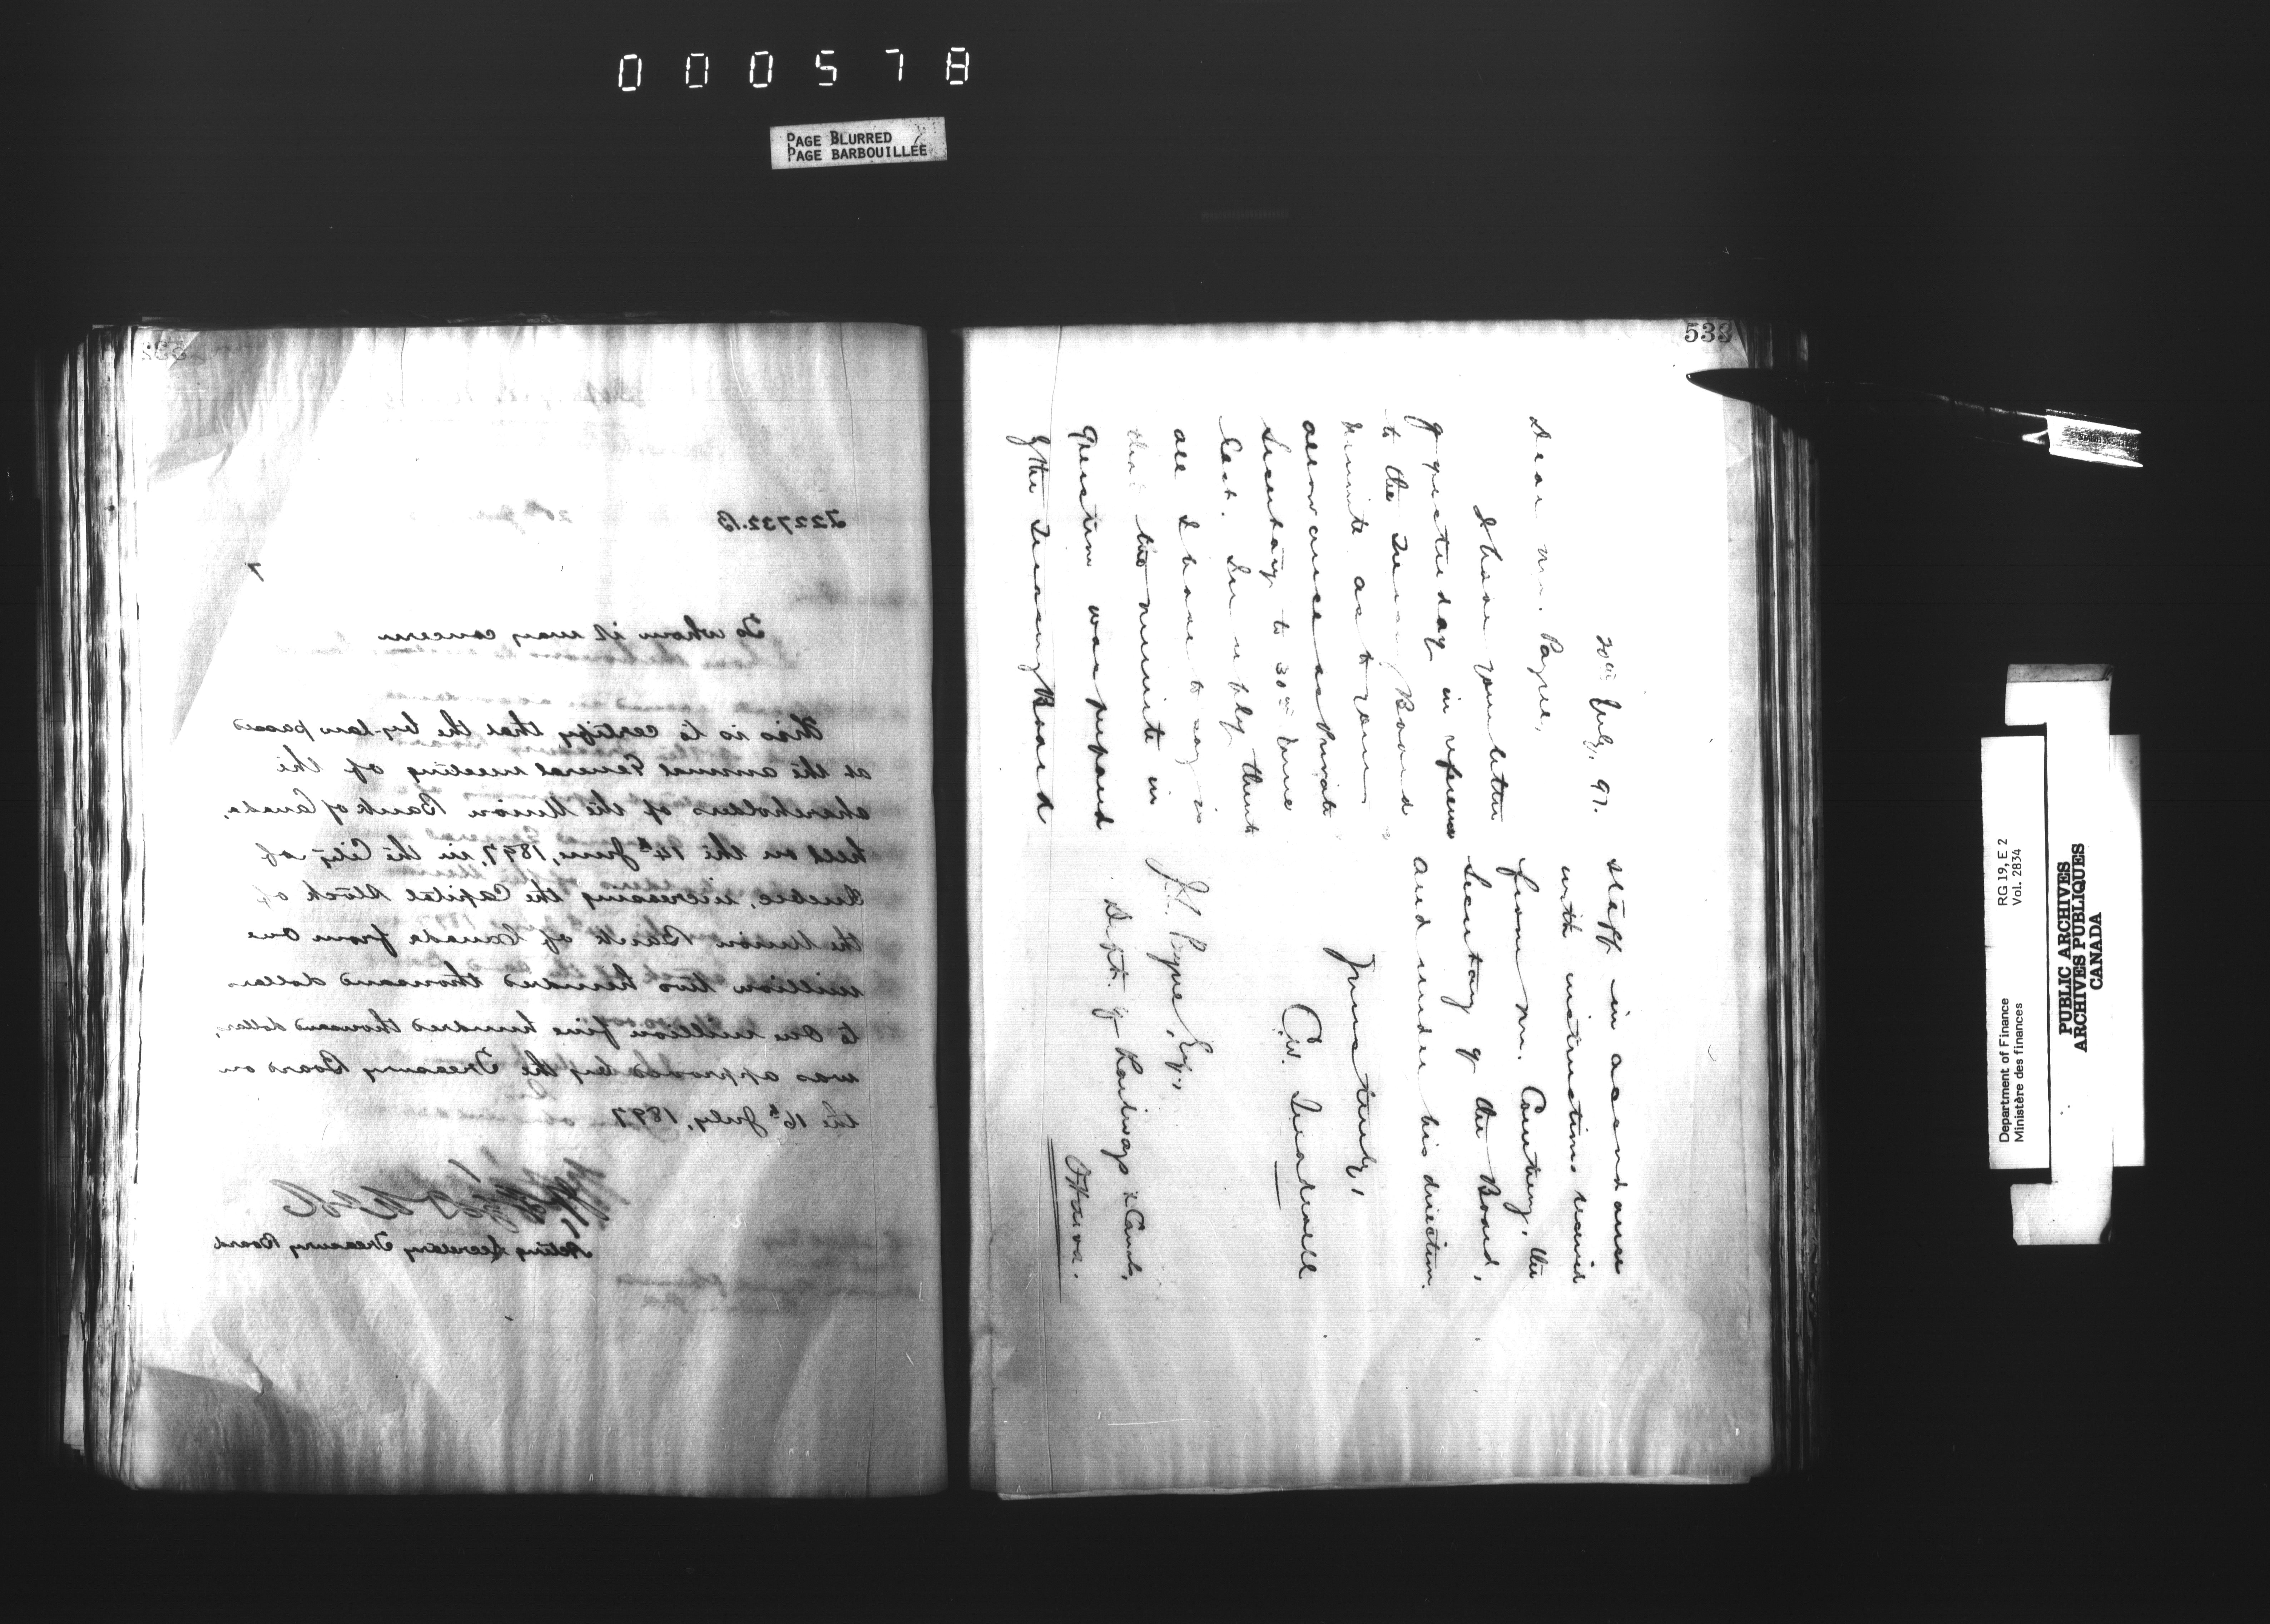 000578
PAGE BLURRED
PAGE BARBOUILLÉE
T22732.B
To whom it may concern
This is to certify that the by-law passed
at the annual General meeting of the
shareholders of the Union Bank of Canada,
held on the 14th June, 1897, in the City of
Quebec, increasing the Capital Stock of
the Union Bank of Canada from One
million two hundred thousand dollars
to One million five hundred thousand dollars,
was approved by the Treasury Board on
the 16th July, 1897
Acting Secretary Treasury Board
533
20th July, 97.
Dear Mr. Payne,
I have your letter
of yesterday in reference
to the Treasury Board
Minute as to your
allowance as Private
Secretary to 30th June
last. In reply thereto
all I have to say is
that the minute in
question was prepared
by the Treasury Board
staff in accordance
with instructions received
from Mr. Courtney, the
Secretary of the Board,
and under his direction.
Yours truly,
C.W. Treadwell
J.L. Payne, Esq.,
Dept. of Railways & Canals,
Ottawa.
Department of Finance
Ministère des finances
RG 19, E 2
Vol. 2834
PUBLIC ARCHIVES
ARCHIVES PUBLIQUES
CANADA